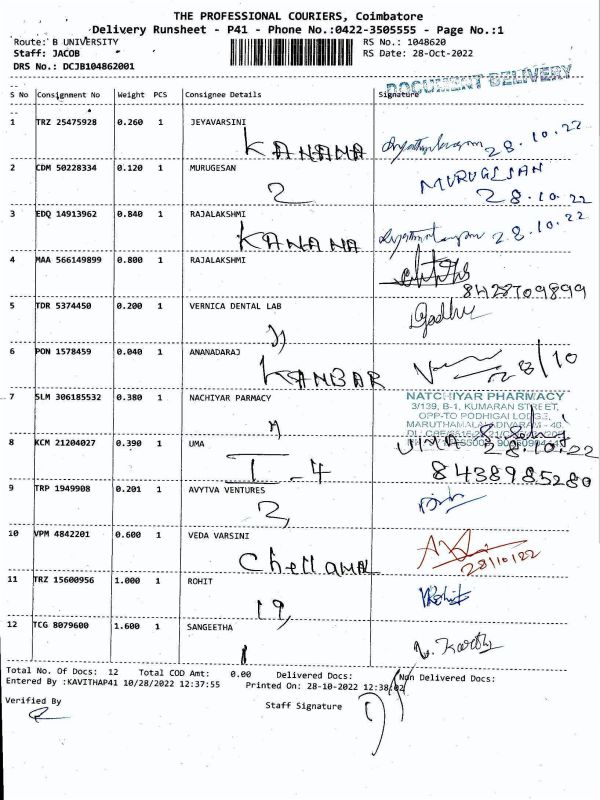 THE PROFESSIONAL COURIERS, Coimbatore
Delivery Runsheet - P41 - Phone No.:0422-3505555 - Page No.:1
Route: B UNIVERSITY RS No.: 1048620
Staff: JACOB RS Date: 28-Oct-2022
DRS No.: DCJB104862001
DOCUMENT DELIVERY
S No Consignment No Weight PCS Consignee Details Signature
1 TRZ 25475928 0.260 1 JEYAVARSINI
KANAMA 28.10.22
2 CDM 50228334 0.120 1 MURUGESAN MURUGESAN
2 28.10.22
3 EDQ 14913962 0.840 1 RAJALAKSHMI
KANANA 28.10.22
4 MAA 566149899 0.800 1 RAJALAKSHMI
8428709899
5 TDR 5374450 0.200 1 VERNICA DENTAL LAB
6 PON 1578459 0.040 1 ANANADARAJ
KANBAR 28/10
7 SLM 306185532 0.380 1 NACHIYAR PARMACY
NATCHIYAR PHARMACY
3/139, B-1, KUMARAN STREET,
OPP-TO PODHIGAI LODGE,
MARUTHAMALAI ADIVARAM - 46.
8 KCM 21204027 0.390 1 UMA UMA 28.10.22
I - 4 8438985280
9 TRP 1949908 0.201 1 AVYTVA VENTURES
2,
10 VPM 4842201 0.600 1 VEDA VARSINI
Chellama 28/10/22
11 TRZ 15600956 1.000 1 ROHIT
19,
12 TCG 8079600 1.600 1 SANGEETHA
1 Karthi
Total No. Of Docs: 12 Total COD Amt: 0.00 Delivered Docs: Non Delivered Docs:
Entered By :KAVITHAP41 10/28/2022 12:37:55 Printed On: 28-10-2022 12:38:02
Verified By Staff Signature